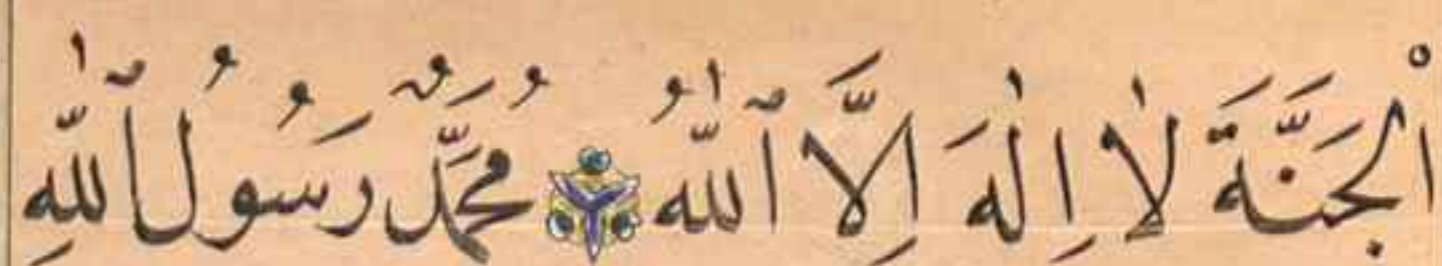 الْجَنَّةَ لَا اِلٰهَ اِلَّا ٱللّٰهُ مُحَمَّدٌ رَسُولُ ٱللّٰهِ